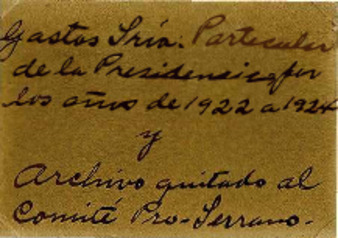 Gastos Sría. Particular
de la Presidencia, por
los años de 1922 a 1924
y
Archivo quitado al
Comité Pro-Serrano.-